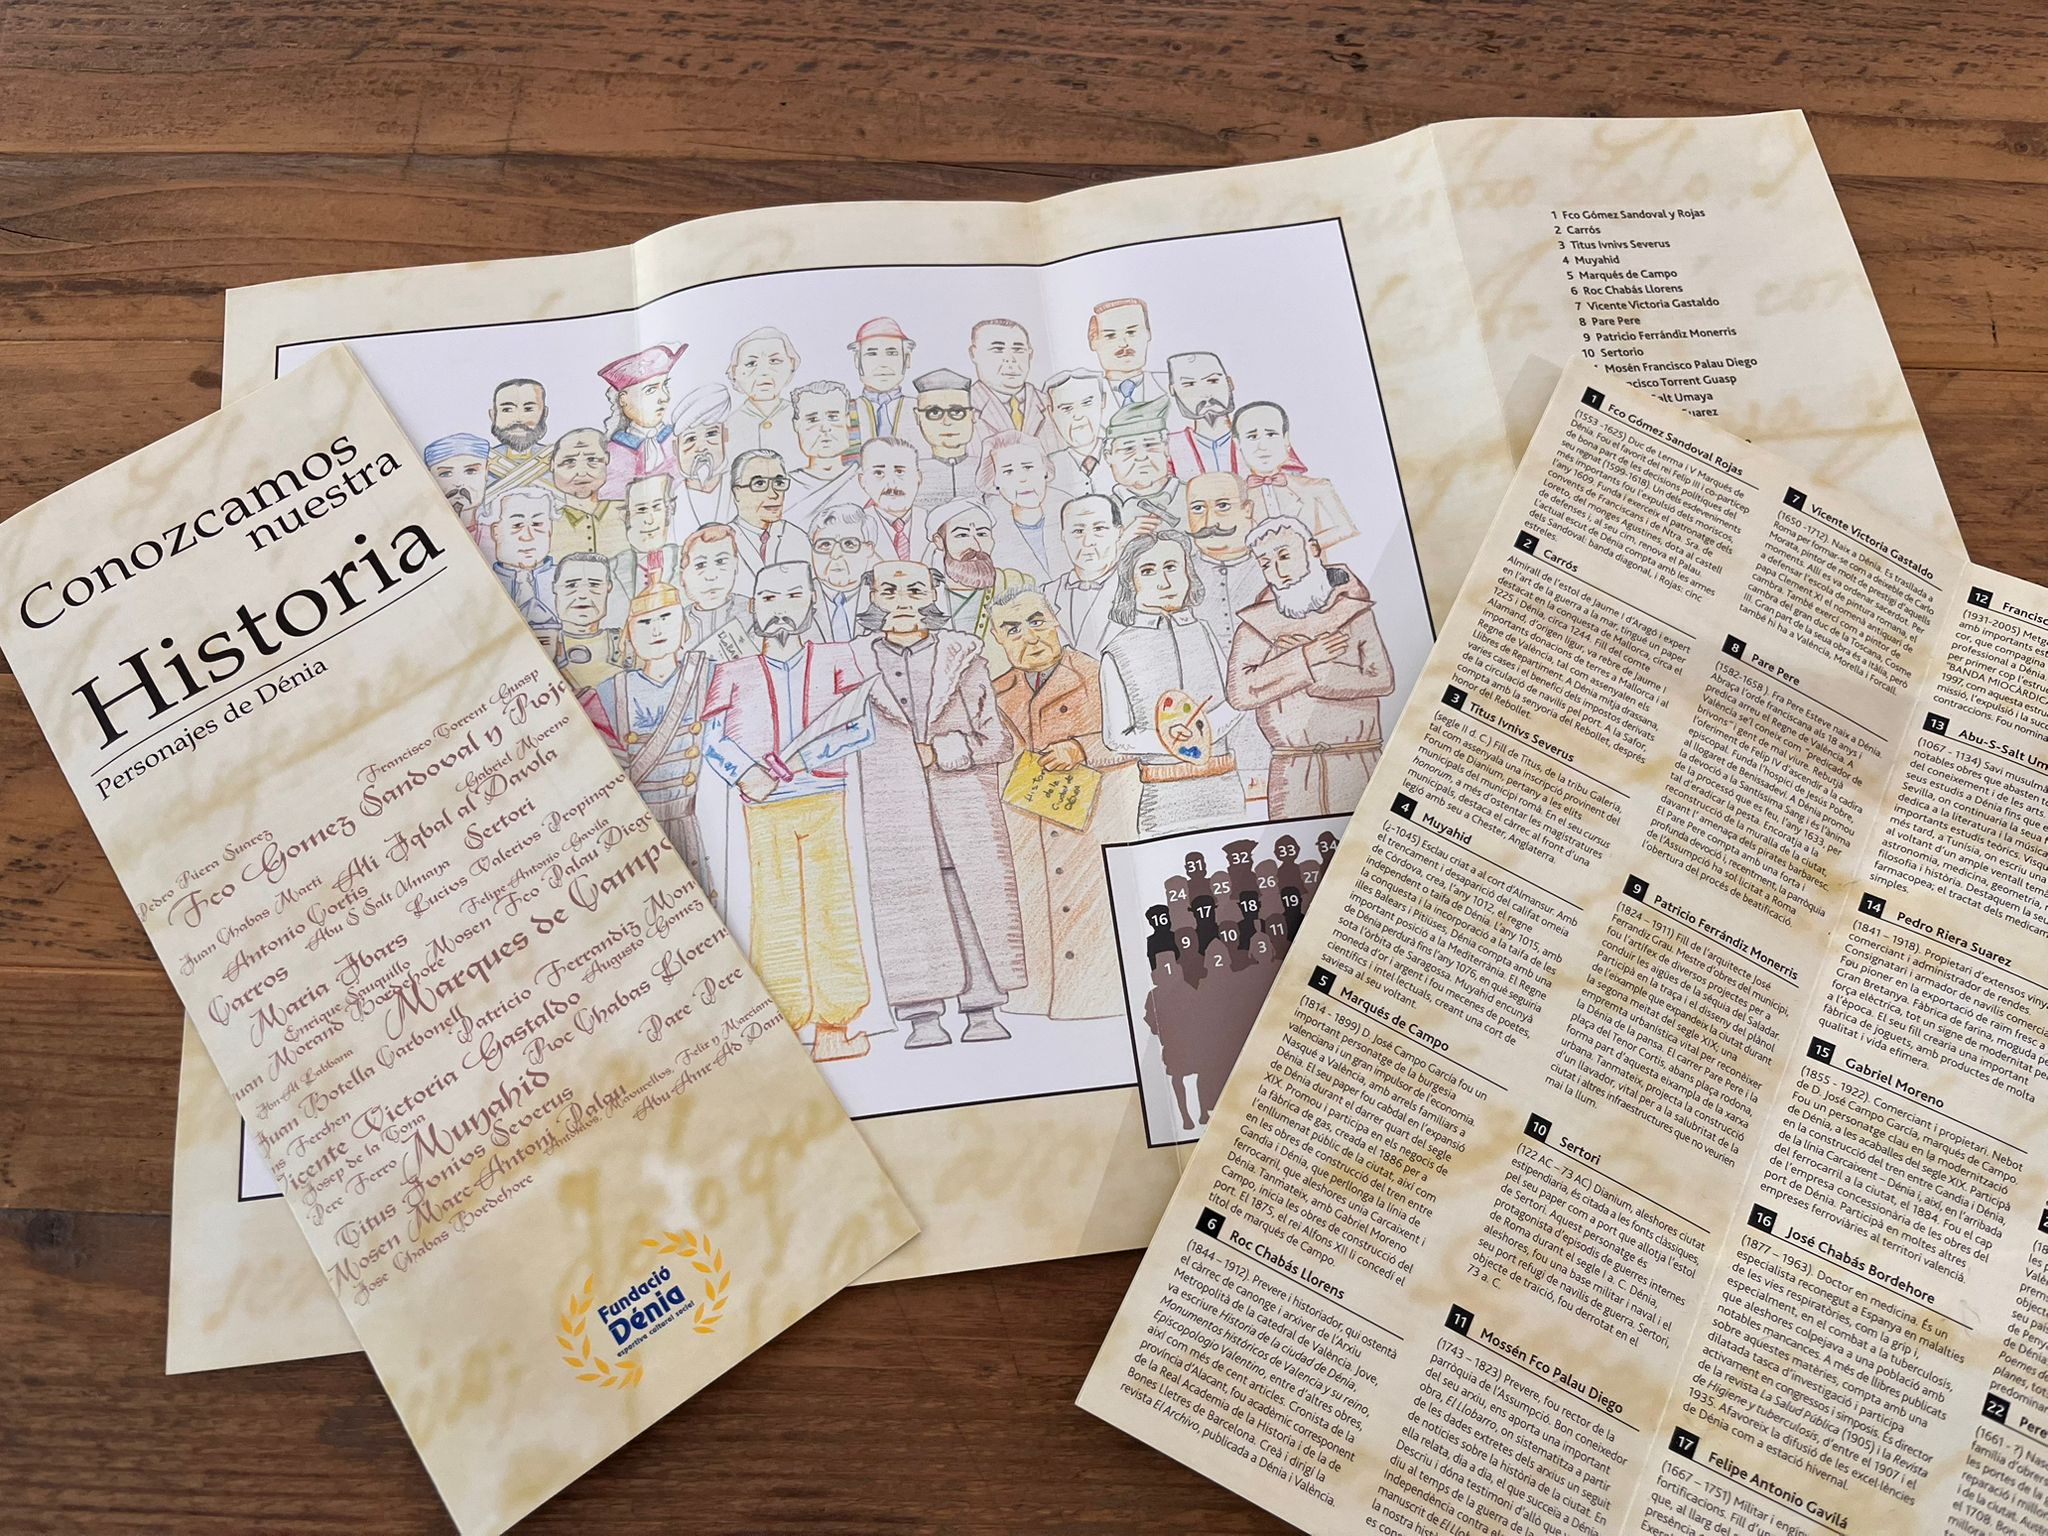 Conozcamos
nuestra
Historia
Personajes de Dénia
Francisco Torrent Guasp
Pedro Riera Suarez
Fco Gomez Sandoval y Roja
Gabriel Moreno
Juan Chabas Marti
Ali Iqbal al Dawla
Antonio Cortis
Sertori
Abu S Salt Umaya
Lucius Valerius Propinquo
Carros
Felipe Antonio Gavila
Maria Ibars
Mosen Fco Palau Diego
Enrique Sauquillo
Bordehore
Marques de Campo
Morand
Ibn Al Labbana
Patricio Ferrandiz Mone
Botella Carbonell
Augusto Gomez
Ferchen
Vicente Victoria Gastaldo
Roc Chabas Lloren
Josep de la Zona
Pere Ferro
Muyahid
Pare Pere
Titus Ivnivs Severus
Mosen Marc Antoni Palau
Abu-Amr Ad Dani
Jose Chabas Bordehore
Fundació
Dénia
esportiva cultural social
Historia
de la
Ciudad de
Dénia
31 32 33 34
24 25 26 27
16 17 18 19
9 10 11
1 2 3
1 Fco Gómez Sandoval y Rojas
2 Carrós
3 Titus Ivnivs Severus
4 Muyahid
5 Marqués de Campo
6 Roc Chabás Llorens
7 Vicente Victoria Gastaldo
8 Pare Pere
9 Patricio Ferrándiz Monerris
10 Sertorio
Mosén Francisco Palau Diego
ncisco Torrent Guasp
Salt Umaya
Suarez
1 Fco Gómez Sandoval Rojas
(1553 -1625) Duc de Lerma i V Marqués de
Dénia. Fou el favorit del rei Felip III i co-partícep
de bona part de les decisions polítiques del
seu regnat (1599-1618). Un dels esdeveniments
més importants fou l'expulsió dels moriscos,
l'any 1609. Funda i exerceix el patronatge dels
convents de Franciscans i de Ntra. Sra. de
Loreto, del monges Agustines, dota al castell
de defenses i, al seu cim, renova el Palau.
L'actual escut de Dénia compta amb les armes
dels Sandoval: banda diagonal, i Rojas: cinc
estreles.
2 Carrós
Almirall de l'estol de Jaume I d'Aragó i expert
en l'art de la guerra a la mar, tingué un paper
destacat en la conquesta de Mallorca, circa el
1225 i Dénia, circa 1244. Fill del comte
Alamand, d'origen ligur, va rebre de Jaume I
importants donacions de terres a Mallorca i al
Regne de València, tal com assenyalen els
Llibres de Repartiment. A Dénia mitja drassana,
varies cases i el benefici dels impostos derivats
de la circulació de navilis pel port. A la Safor,
compta amb la senyoria del Rebollet, després
honor del Rebollet.
3 Titus Ivnivs Severus
(segle II d. C) Fill de Titus, de la tribu Galeria,
tal com assenyala una inscripció provinent del
Forum de Dianium, pertany a les elits
municipals del municipi romà. En el seu cursus
honorum, a més d'ostentar les magistratures
municipals, destaca el càrrec al front d'una
legió amb seu a Chester, Anglaterra.
4 Muyahid
(¿-1045) Esclau criat a al cort d'Almansur. Amb
el trencament i desaparició del califat omeia
de Còrdova, crea, l'any 1012, el regne
independent o taifa de Dénia. L'any 1015, amb
la conquesta i la incorporació a la taifa de les
illes Balears i Pitiüses, Dénia compta amb una
important posició a la Mediterrània. El Regne
de Dénia perdurà fins l'any 1076, en què seguiria
sota l'òrbita de Saragossa. Muyahid encunyà
moneda d'or i argent i fou mecenes de poetes,
científics i intel·lectuals, creant una cort de
saviesa al seu voltant.
5 Marqués de Campo
(1814 - 1899) D. José Campo García fou un
important personatge de la burgesia
valenciana i un gran impulsor de l'economia.
Nasqué a València, amb arrels familiars a
Dénia. El seu paper fou cabdal en l'expansió
de Dénia durant el darrer quart del segle
XIX. Promou i participa en els negocis de
la fàbrica de gas, creada el 1886 per a
l'enllumenat públic de la ciutat, així com
en les obres de construcció del tren entre
Gandia i Dénia, que perllonga la línia de
ferrocarril, que aleshores unia Carcaixent i
Dénia. Tanmateix, amb Gabriel Moreno
Campo, inicia les obres de construcció del
port. El 1875, el rei Alfons XII li concedí el
títol de marqués de Campo.
6 Roc Chabás Llorens
(1844 - 1912). Prevere i historiador, qui ostentà
el càrrec de canonge i arxiver de l'Arxiu
Metropolità de la catedral de València. Jove,
va escriure Historia de la ciudad de Dénia,
Monumentos históricos de Valencia y su reino,
Episcopologio Valentino, entre d'altres obres,
així com més de cent articles. Cronista de la
província d'Alacant, fou acadèmic corresponent
de la Real Academia de la Historia i de la de
Bones Lletres de Barcelona. Creà i dirigí la
revista El Archivo, publicada a Dénia i València.
7 Vicente Victoria Gastaldo
(1650 -1712). Naix a Dénia. Es trasllada a
Roma per formar-se com a deixeble de Carlo
Morata, pintor de molt de prestigi d'aquells
moments. Allí es va ordenar sacerdot. Per
defensar l'escola de pintura romana, el
papa Clement XI el nomena antiquari de
cambra. També exercí com a pintor de
cambra del gran duc de la Toscana, Cosme
III. Gran part de la seua obra és a Itàlia, però
també hi ha a València, Morella i Forcall.
8 Pare Pere
(1582-1658 ). Fra Pere Esteve naix a Dénia.
Abraça l'orde franciscana als 18 anys i
predica arreu el Regne de València. A
València se'l coneix com "predicador de
brivons" i gent de mal viure. Rebutja
l'oferiment de Felip IV d'ascendir a la cadira
episcopal. Funda l'hospici de Jesús Pobre,
al llogaret de Benissadeví. A Dénia promou
la devoció a la Santíssima Sang i és l'ànima
de la processó que es feu, l'any 1633, per
tal d'eradicar la pesta. Encoratja a la
reconstrucció de la muralla de la ciutat,
davant l'amenaça dels pirates barbarescs.
El Pare Pere compta amb una forta i
profunda devoció i, recentment, la parròquia
de l'Assumpció ha sol·licitat a Roma
l'obertura del procés de beatificació.
9 Patricio Ferrándiz Monerris
(1824 - 1911) Fill de l'arquitecte José
Ferrandiz Grau. Mestre d'obres del municipi,
fou l'artífex de diversos projectes per a
conduir les aigües de la séquia del Saladar.
Participà en la traça i el disseny del plànol
de l'eixample que expandeix la ciutat durant
la segona meitat del segle XIX; una
empremta urbanística vital per a reconèixer
la Dénia de la pansa. El carrer Pare Pere i la
plaça del Tenor Cortis, abans plaça rodona,
forma part d'aquesta eixampla de la xarxa
urbana. Tanmateix, projecta la construcció
d'un llavador, vital per a la salubritat de la
ciutat i altres infraestructures que no veurien
mai la llum.
10 Sertori
(122 AC – 73 AC) Dianium, aleshores ciutat
estipendiaria, és citada a les fonts clàssiques,
pel seu paper com a port que allotja l'estol
de Sertori. Aquest personatge és
protagonista d'episodis de guerres internes
de Roma durant el segle I a. C. Dénia,
aleshores, fou una base militar i naval i el
seu port refugi de navilis de guerra. Sertori,
objecte de traïció, fou derrotat en el
73 a. C.
11 Mossén Fco Palau Diego
(1743 – 1823) Prevere, fou rector de la
parròquia de l'Assumpció. Bon coneixedor
del seu arxiu, ens aporta una important
obra, El Llobarro, on sistematitza a partir
de les dades extretes dels arxius un seguit
de notícies sobre la història de la ciutat. En
ella relata, dia a dia, el que succeïa a Dénia
Descriu i dóna testimoni d'allò que
diu al temps de la guerra de
Independència contra els
manuscrit de El Llobarro
la nostra histò
es con
12 Francisc
(1931-2005) Metge
cor, que compagina
professional a Dénia
amb important
per primer cop l'estruct
"BANDA MIOCÀRDIC
1997, com aquesta estru
missió, l'expulsió i la succ
contraccions. Fou nomina
13 Abu-S-Salt Um
(1067 - 1134) Savi musulmà
notables obres que abasten to
del coneixement i de les arts.
seus estudis a Dénia fins que
Sevilla, on continuaria la seua
dedica a la literatura i la mús
importants estudis teòrics. Visqu
més tard, a Tunísia, on escriu
al voltant d'un ample ventall temà
astronomia, medicina, geometria,
filosofia i història. Destaquem la seu
farmacopea: el tractat dels medicam
simples.
14 Pedro Riera Suarez
(1841 – 1918). Propietari d'extensos viny
comerciant i administrador de rendes.
Consignatari i armador de navilis comercia
Fou pioner en la exportació de raim fresc a
Gran Bretanya. Fàbrica de farina, moguda pe
força elèctrica, tot un signe de modernitat pe
a l'època. El seu fill crearia una important
fàbrica de joguets, amb productes de molta
qualitat i vida efímera.
15 Gabriel Moreno
(1855 - 1922). Comerciant i propietari. Nebot
de D. José Campo García, marqués de Campo.
Fou un personatge clau en la modernització
de Dénia, a les acaballes del segle XIX. Participà
en la construcció del tren entre Gandia i Dénia,
de la línia Carcaixent – Dénia i, així, en l'arribada
del ferrocarril a la ciutat, el 1884. Fou el cap
de l'empresa concessionària de les obres del
port de Dénia. Participà en moltes altres
empreses ferroviàries al territori valencià.
16 José Chabás Bordehore
(1877 – 1963). Doctor en medicina. És un
especialista reconegut a Espanya en malalties
de les vies respiratòries, com la grip i,
especialment, en el combat a la tuberculosis,
que aleshores colpejava a una població amb
notables mancances. A més de llibres publicats
sobre aquestes matèries, compta amb una
dilatada tasca d'investigació i participa
activament en congressos i simposis. És director
de la revista La Salud Pública (1905) i la Revista
de Higiene y tuberculosis, d'entre el 1907 i el
1935. Afavoreix la difusió de les excel·lències
de Dénia com a estació hivernal.
17 Felipe Antonio Gavilá
(1667 – 1751) Militar i engin
fortificacions. Fill d'un
que, al llarg del
presència
22 Pere
(1661 - ?) Nas
família d'obrer
les portes de
reparació i mil
i de la ciutat. Aust
el 1708, Bon